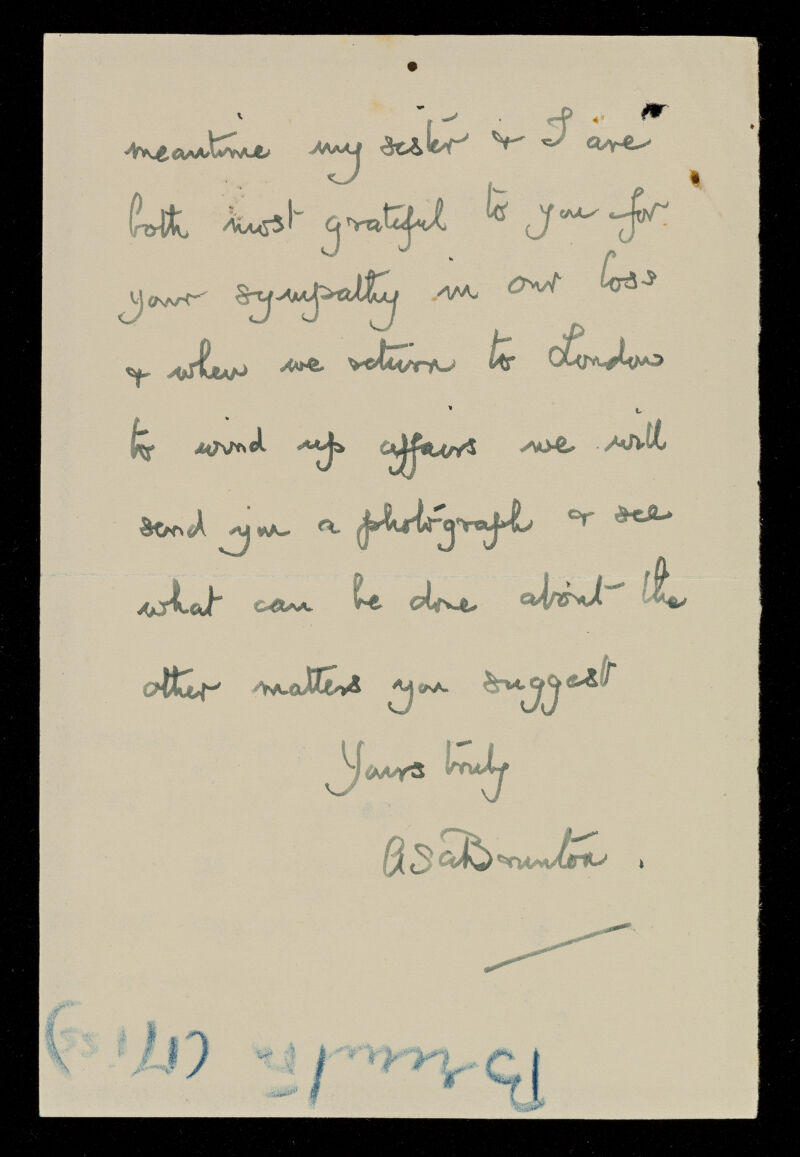 meantime my sister & I are
both most grateful to you for
your sympathy in our loss
& when we return to London
to wind up affairs we will
send you a photograph & see
what can be done about the
other matters you suggest
Yours truly
Brunton.
Brunton (Miss)